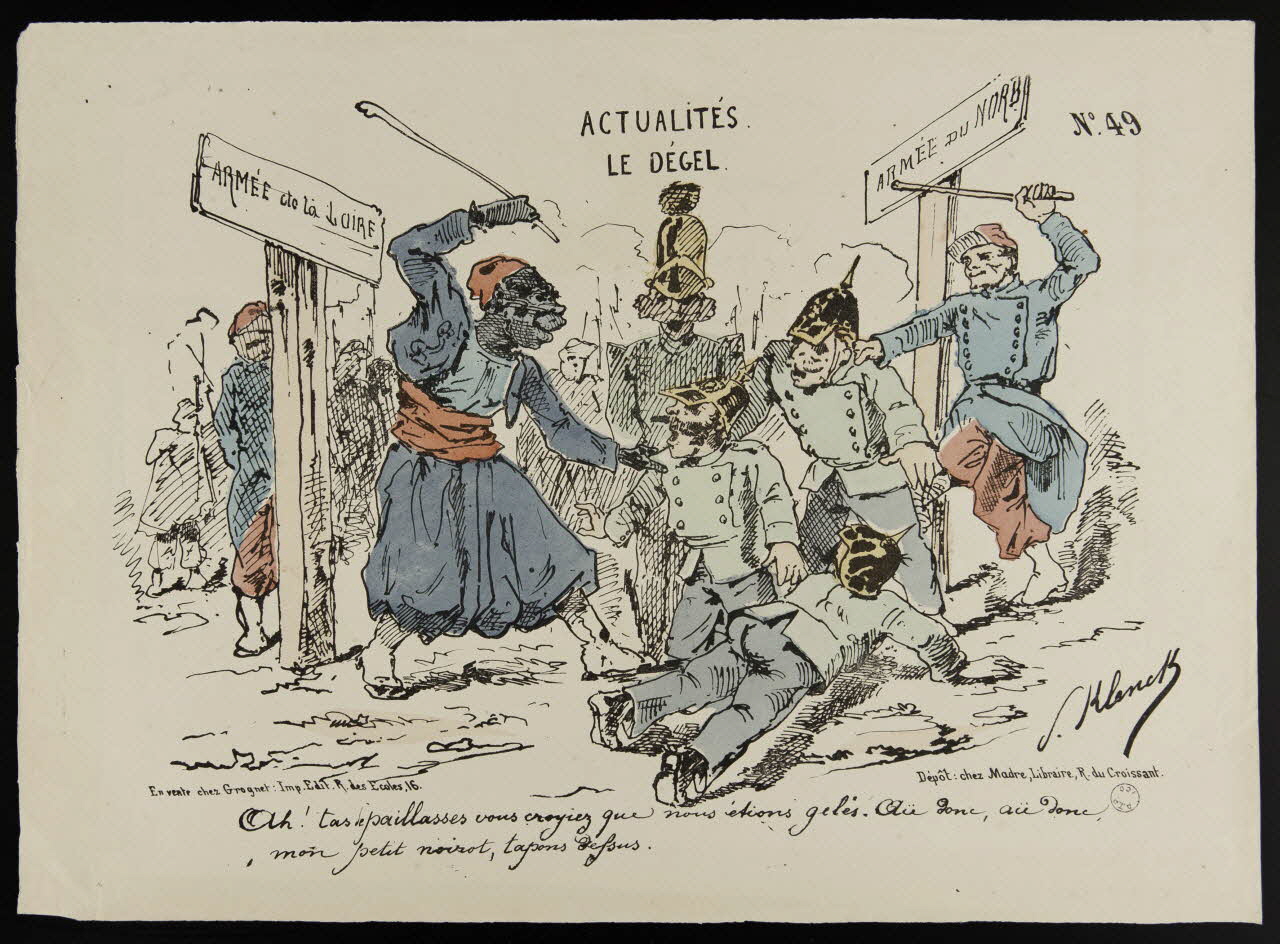 ACTUALITÉS.
LE DÉGEL.
Nº. 49
ARMÉE de la LOIRE
ARMÉE DU NORD
J. Klenck
En vente chez Grognet: Imp. Edit. R. des Ecoles, 16.
Dépôt: chez Madre, Libraire, R. du Croissant.
Ah! tas d'paillasses vous croyiez que nous étions gelés. Aïe donc, aïe donc,
mon petit noirot, tapons dessus.